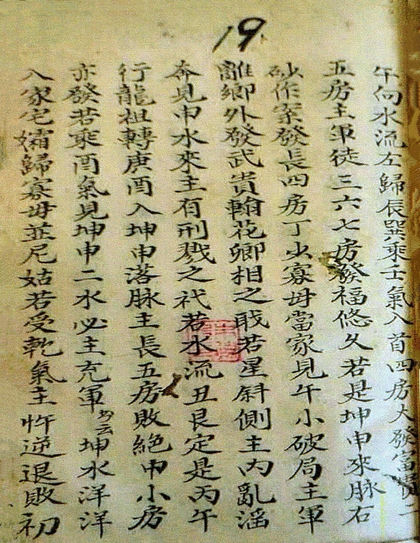 19
午向水流左歸辰巽乘士氣入首四房大發富貴二
五房主軍徒三六七房發福悠久若是坤申來脉石
砂作案發長四房丁少寡母當家見午小破局主軍
離鄉外發武貴翰花卿相之戢若星斜側主內亂滛
奔見申水來主有刑戮之代若水流丑艮定是丙午
行龍祖轉庚酉入坤申落脉主長五房敗絕中小房
亦發若乘酉氣見坤申二水必主充軍 坤水洋洋
入家宅孀歸寡毋並尼姑若受乾氣主忤逆退敗初